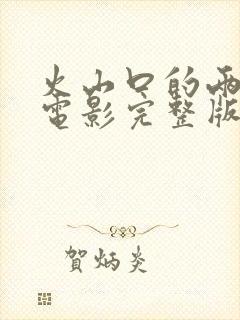 火山口的兩
電影完整版
賀炳炎